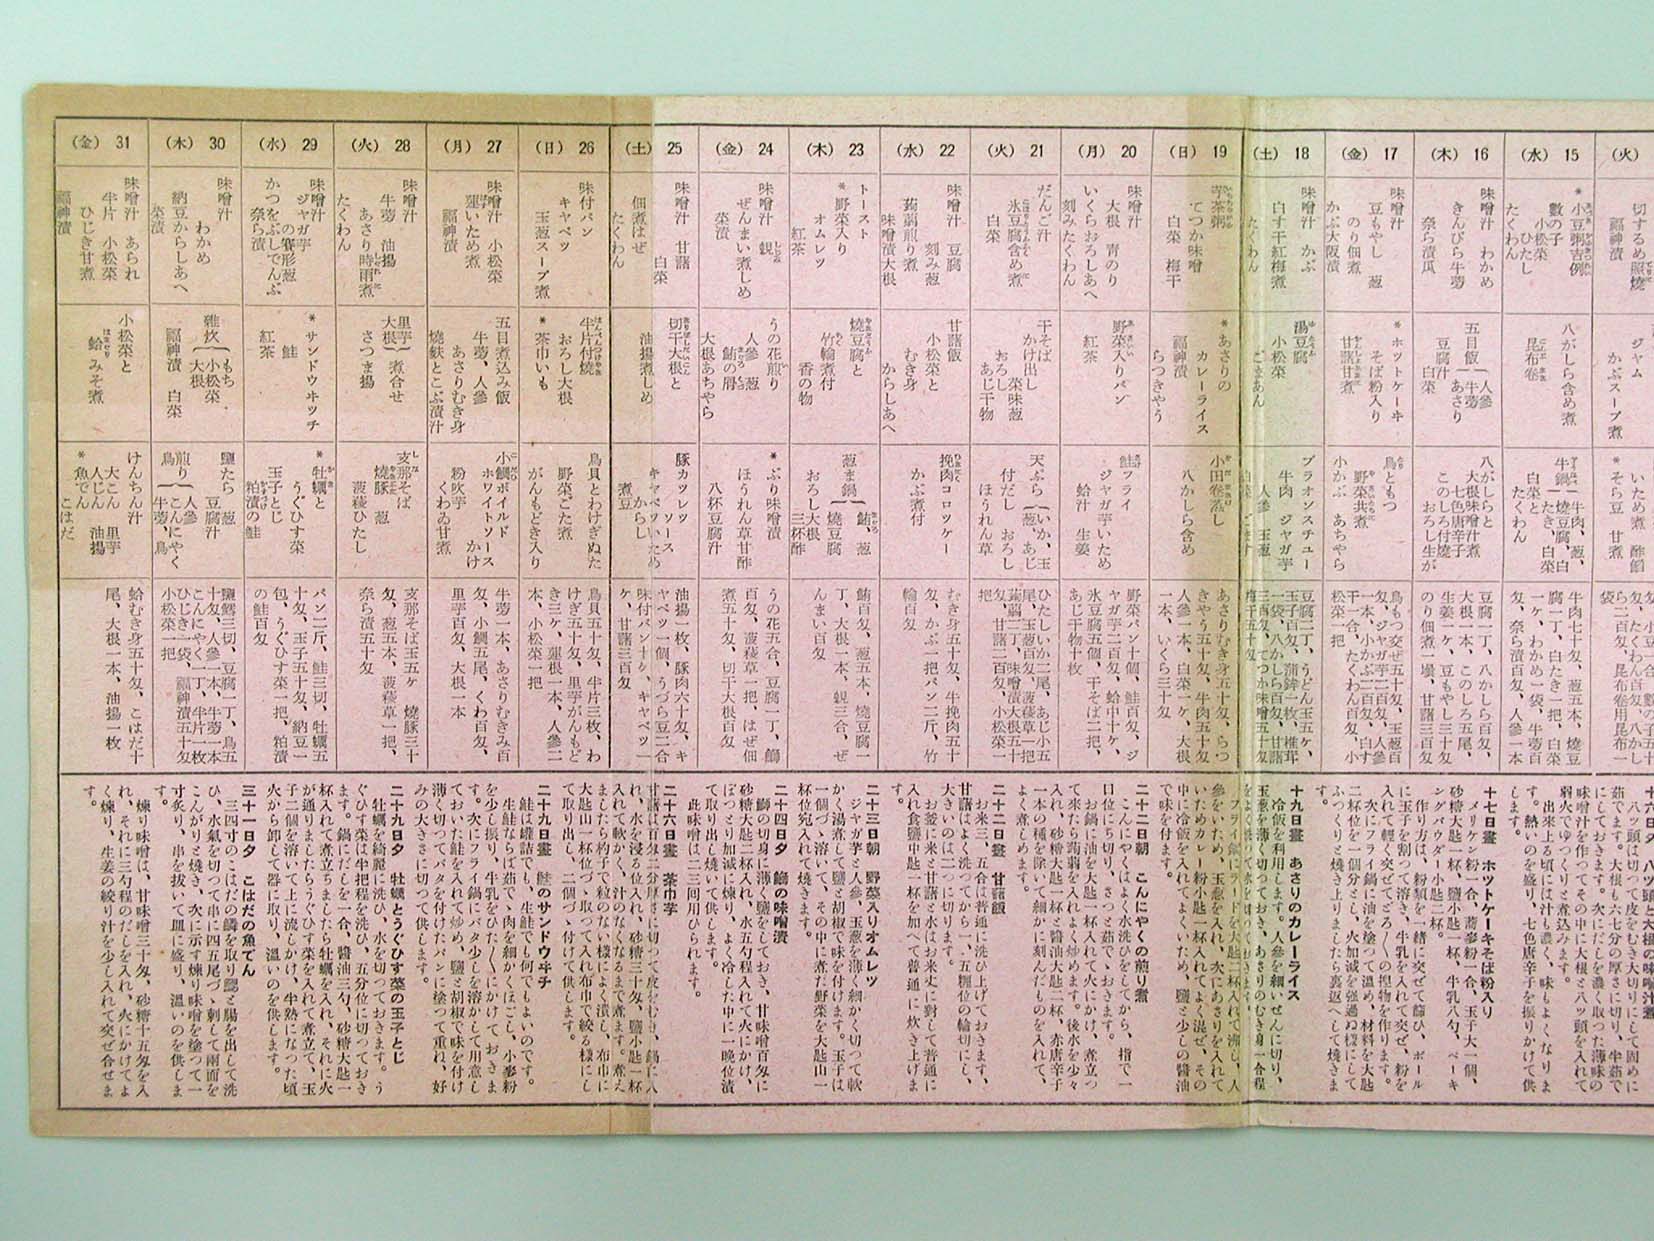 (火)
切するめ照燒
福神漬
ジャム
かぶスープ煮
いため煮 酢䭔
*そら豆 甘煮
15 (水)
*小豆粥吉例
數の子
小松菜
ひたし
たくわん
八がしら含め煮
昆布卷
牛鍋 牛肉、葱、
燒豆腐、白
たき、白菜
白菜と
たくわん
牛肉七十匁、葱五本、燒豆
腐二丁、白たき一把、白菜
一ケ、わかめ一袋、牛蒡百
匁、奈ら漬百匁、人參一本
16 (木)
味噌汁 わかめ
きんぴら牛蒡
奈ら漬瓜
五目飯 人參
牛蒡
あさり
豆腐汁
白菜
八がしらと
大根味噌汁煮
七色唐辛子
このしろ付燒
おろし生が
豆腐一丁、八かしら百匁、
大根一本、このしろ五尾、
生姜一ケ、豆もやし三十匁
のり佃煮一壜、甘藷三百匁
17 (金)
味噌汁
豆もやし 葱
のり佃煮
かぶ大阪漬
*ホットケーキ
そば粉入り
紅茶
甘藷甘煮
鳥ともつ
野菜共煮
小かぶ あちやら
鳥もつ交ぜ五十匁、玉葱百
匁、ジャガ芋二百匁、人參
一本、小かぶ二百匁、白す
干一合、たくわん百匁、小
松菜一把
18 (土)
味噌汁 かぶ
白す干紅梅煮
たくわん
湯豆腐
小松菜
ごまあん
ブラオンスチュー
牛肉 ジャガ芋
人參 玉葱
豆腐二丁、うどん玉五ケ、
玉子百匁、蒲鉾一枚、椎茸
一袋、八かしら百匁、甘藷
三百匁、てつか味噌五十匁
梅干五十匁
19 (日)
芋茶粥
てつか味噌
白菜 梅干
*あさりの
カレーライス
福神漬
らつきやう
小田卷蒸し
八かしら含め
あさりむき身五十匁、らつ
きやう五十匁、牛肉五十匁
人參一本、白菜一ケ、大根
一本、いくら三十匁
20 (月)
味噌汁
大根 青のり
いくらおろしあへ
刻みたくわん
野菜入りパン
紅茶
鮭フライ
ジャガ芋いため
蛤汁 生姜
野菜パン十個、鮭百匁、ジ
ャガ芋二百匁、蛤中十ケ、
氷豆腐五個、干そば二把、
あじ干物十枚
21 (火)
だんご汁
氷豆腐含め煮
白菜
干そば
かけ出し
菜味葱
おろし
あじ干物
天ぷら いか、玉
葱、あじ
付だし おろし
ほうれん草
ひたしいか二尾、あじ小五
尾、玉葱百匁、菠薐草一把
蒟蒻一丁、味噌漬大根五十
匁、甘藷二百匁、小松菜一
把
22 (水)
味噌汁 豆腐
刻み葱
蒟蒻煎り煮
味噌漬大根
甘藷飯
小松菜と
むき身
からしあへ
挽肉コロッケー
かぶ煮付
むき身五十匁、牛挽肉五十
匁、かぶ一把パン二斤、竹
輪百匁
23 (木)
トースト
*野菜入り
オムレツ
紅茶
燒豆腐と
竹輪煮付
香の物
葱ま鍋 鮪、葱
燒豆腐
おろし大根
三杯酢
鮪百匁、葱五本、燒豆腐一
丁、大根一本、蜆三合、ぜ
んまい百匁
24 (金)
味噌汁 蜆
ぜんまい煮しめ
菜漬
うの花煎り
人參 葱
鮪の屑
大根あちやら
*ぶり味噌漬
ほうれん草甘酢
八杯豆腐汁
うの花五合、豆腐一丁、鰤
百匁、菠薐草一把、はぜ佃
煮五十匁、切干大根百匁
25 (土)
味噌汁 甘藷
白菜
佃煮はぜ
たくわん
切干大根と
油揚煮しめ
豚カツレツ
ソース
キャベツいため
からし
煮豆
油揚一枚、豚肉六十匁、キ
ャベツ一個、うづら豆二合
味付パン十ケ、キャベツ一
ケ、甘藷三百匁
26 (日)
味付パン
キャベツ
玉葱スープ煮
半片付燒
おろし大根
*茶巾いも
鳥貝とわけぎぬた
野菜ごた煮
がんもどき入り
鳥貝五十匁、半片三枚、わ
けぎ五十匁、里芋がんもど
き三ケ、蓮根一本、人參二
本、小松菜一把
27 (月)
味噌汁 小松菜
蓮いため煮
福神漬
五目煮込み飯
牛蒡、人參
あさりむき身
燒麩とこぶ漬汁
小鯛ボイルド
ホワイトソース
かけ
粉吹芋
くわゐ甘煮
牛蒡一本、あさりむきみ百
匁、小鯛五尾、くわ百匁、
里芋百匁、大根一本
28 (火)
味噌汁
牛蒡 油揚
あさり時雨煮
たくわん
里芋
大根 煮合せ
さつま揚
支那そば
燒豚 葱
菠薐ひたし
支那そば玉五ケ 燒豚三十
匁、葱五本、菠薐草一把、
奈ら漬五十匁
29 (水)
味噌汁
ジャガ芋
の賽形葱
かつをぶしでんぶ
奈ら漬
*サンドウヰツチ
鮭
紅茶
*牡蠣と
うぐひす菜
玉子とじ
粕漬の鮭
パン二斤、鮭三切、牡蠣五
十匁、玉子五十匁、納豆一
包、うぐひす菜一把、粕漬
の鮭百匁
30 (木)
味噌汁
わかめ
納豆からしあへ
菜漬
雜炊 もち
小松菜
大根
福神漬 白菜
鹽たら 葱
豆腐汁
煎り鳥 人參
こんにやく
牛蒡、鳥
鹽鱈三切、豆腐一丁、鳥五
十匁、人參一本、牛蒡一本
こんにやく一丁、半片一枚
ひじき一袋、福神漬五十匁
小松菜一把
31 (金)
味噌汁 あられ
半片 小松菜
ひじき甘煮
福神漬
小松菜と
蛤みそ煮
けんちん汁
大こん 里芋
人じん 油揚
*魚でん
こはだ
蛤むき身五十匁、こはだ十
尾、大根一本、油揚一枚
十六日夕 八ツ頭と大根の味噌汁煮
八ツ頭は切つて皮をむき大切りにして固めに
茹でます。大根も六七分の厚さに切り、半茹で
にしておきます。次にだしを濃く取つた薄味の
味噌汁を作つてその中に大根と八ツ頭を入れて
弱火でゆつくりと煮込みます。
出來上る頃には汁も濃く、味もよくなりま
す。熱いのを盛り、七色唐辛子を振りかけて供
します。
十七日晝 ホツトケーキそば粉入り
メリケン粉一合、蕎麥粉一合、玉子大一個、
砂糖大匙一杯、鹽小匙一杯、牛乳八勺、ベーキ
ングパウダー小匙二杯。
作り方は、粉類を一緒に交ぜて篩ひ、ボール
に玉子を割つて溶き、牛乳を入れて交ぜ、粉を
入れて輕く交ぜてどろ〱の捏物を作ります。
次にフライ鍋に油を塗つて溫め、材料を大匙
二杯位を一個分とし、火加減を強過ぬ樣にして
ふつくりと燒き上りましたら裏返へして燒きま
す。
十九日晝 あさりのカレーライス
冷飯を利用します。人參を細いせんに切り、
玉葱を薄く切つておき、あさりのむき身一合程
をよく洗つて水を切つておきます。
フライ鍋にラードを大匙二杯入れて沸し、人
參をいため、玉葱を入れ、次にあさりを入れて
いためカレー粉小匙一杯入れてよく混ぜ、その
中に冷飯を入れてよくいため、鹽と少しの醬油
で味を付ます。
二十二日朝 こんにやくの煎り煮
こんにやくはよく水洗ひをしてから、指で一
口位にち切り、さつと茹で丶おきます。
お鍋に油を大匙一杯入れて火にかけ、煮立つ
て來たら蒟蒻を入れよく炒めます。後水を少々
入れ、砂糖大匙一杯と醬油大匙二杯、赤唐辛子
一本の種を除いて細かに刻んだものを入れて、
よく煮ます。
二十二日晝 甘藷飯
お米三、五合は普通に洗ひ上げておきます、
甘藷はよく洗つてから一.五糎位の輪切にし、
大きいのは二つに切ります。
お釜に米と甘藷と水はお米丈に對して普通に
入れ食鹽中匙一杯を加へて普通に炊き上げま
す。
二十三日朝 野菜入りオムレツ
ジャガ芋と人參、玉葱を薄く細かく切つて軟
かく湯煮して鹽と胡椒で味を付けます。玉子は
一個づゝ溶いて、その中に煮た野菜を大匙山一
杯位宛入れて燒きます。
二十四日夕 鰤の味噌漬
鰤の切身に薄く鹽をしておき、甘味噌百匁に
砂糖大匙二杯入れ、水五勺程入れて火にかけて
ぽつとり加減に煉り、よく冷した中に一晚位漬
て取り出し燒いて供します。
此味噌は二三回用ひられます。
二十六日晝 茶巾芋
甘藷は百匁二分厚さに切つて皮をむき、鍋に入
れ、水を浸る位入れ、砂糖三十匁、鹽小匙一杯
入れて軟かく、汁のなくなるまで煮ます。煮え
ましたら杓子で粒のない樣によく潰し、布巾に
大匙山一杯位づゝ取つて入れ布巾で絞る樣にし
て取り出し、二個づゝ付けて供します。
二十九日晝 鮭のサンドウヰチ
鮭は罐詰でも、生鮭でも何でもよいのです。
生鮭ならば茹で丶肉を細かくほごし、小麥粉
を少し振り、牛乳をひた〱にかけて、おきま
す。次にフライ鍋にバタ少しを溶かして用意し
ておいた鮭を入れて炒め、鹽と胡椒で味を付け
薄く切つてバタを付けたパンに塗つて重ね、好
みの大きさに切つて供します。
二十九日夕 牡蠣とうぐひす菜の玉子とじ
牡蠣を綺麗に洗ひ、水を切つておきます。う
ぐひす菜は半把程を洗ひ、五分位に切つておき
ます。鍋にだしを一合、醬油三勺、砂糖大匙一
杯入れて煮立ちましたら牡蠣を入れ、それに火
が通りましたらうぐひす菜を入れて煮立て、玉
子二個を溶いて上に流しかけ、半熟になつた頃
火から卸して器に取り、溫いのを供します。
三十一日夕 こはだの魚でん
三四寸のこはだの鱗を取り鰓と腸を出して洗
ひ、水氣を切つて串に四五尾づゝ刺して兩面を
こんがりと燒き、次に示す煉り味噌を塗つて一
寸炙り、串を拔いて皿に盛り、溫いのを供しま
す。
煉り味噌は、甘味噌三十匁、砂糖十五匁を入
れ、それに三勺程のだしを入れ、火にかけてよ
く煉り、生姜の絞り汁を少し入れて交ぜ合せま
す。